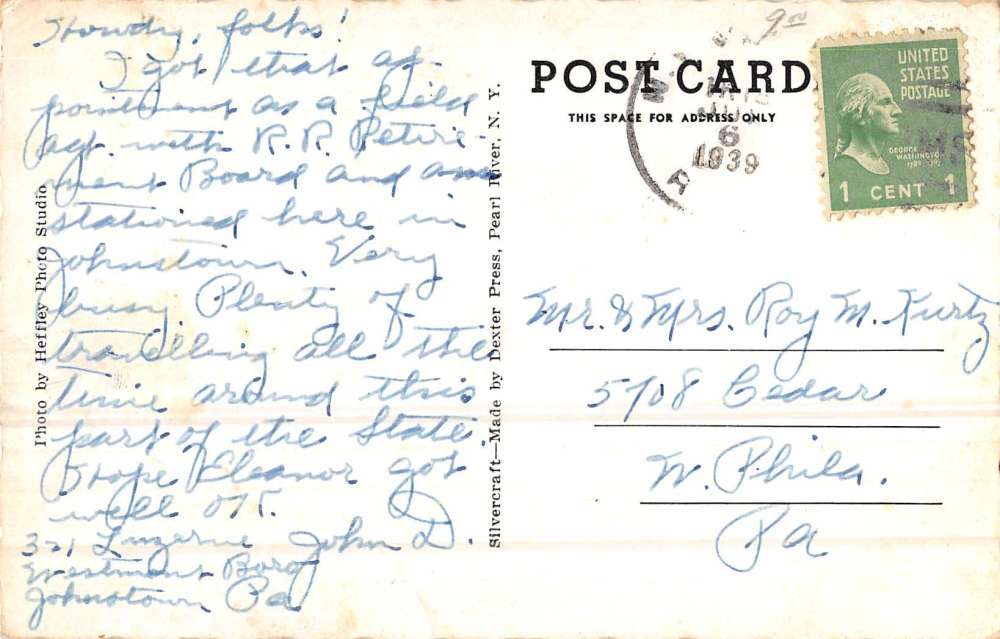 Howdy, folks!
I got that ap-
pointment as a field
agt. with R. R. Retire-
ment Board and am
stationed here in
Johnstown. Very
busy Plenty of
travelling all the
time around this
part of the State.
Hope Eleanor got
well OK.
John D.
321 Luzerne
Westmont Boro
Johnstown Pa
Photo by Heffley Photo Studio
Silvercraft—Made by Dexter Press, Pearl River, N. Y.
POST CARD
THIS SPACE FOR ADDRESS ONLY
6
1939
UNITED
STATES
POSTAGE
GEORGE
WASHINGTON
1 CENT 1
Mr. & Mrs. Roy M. Kurtz
5708 Cedar
W. Phila.
Pa